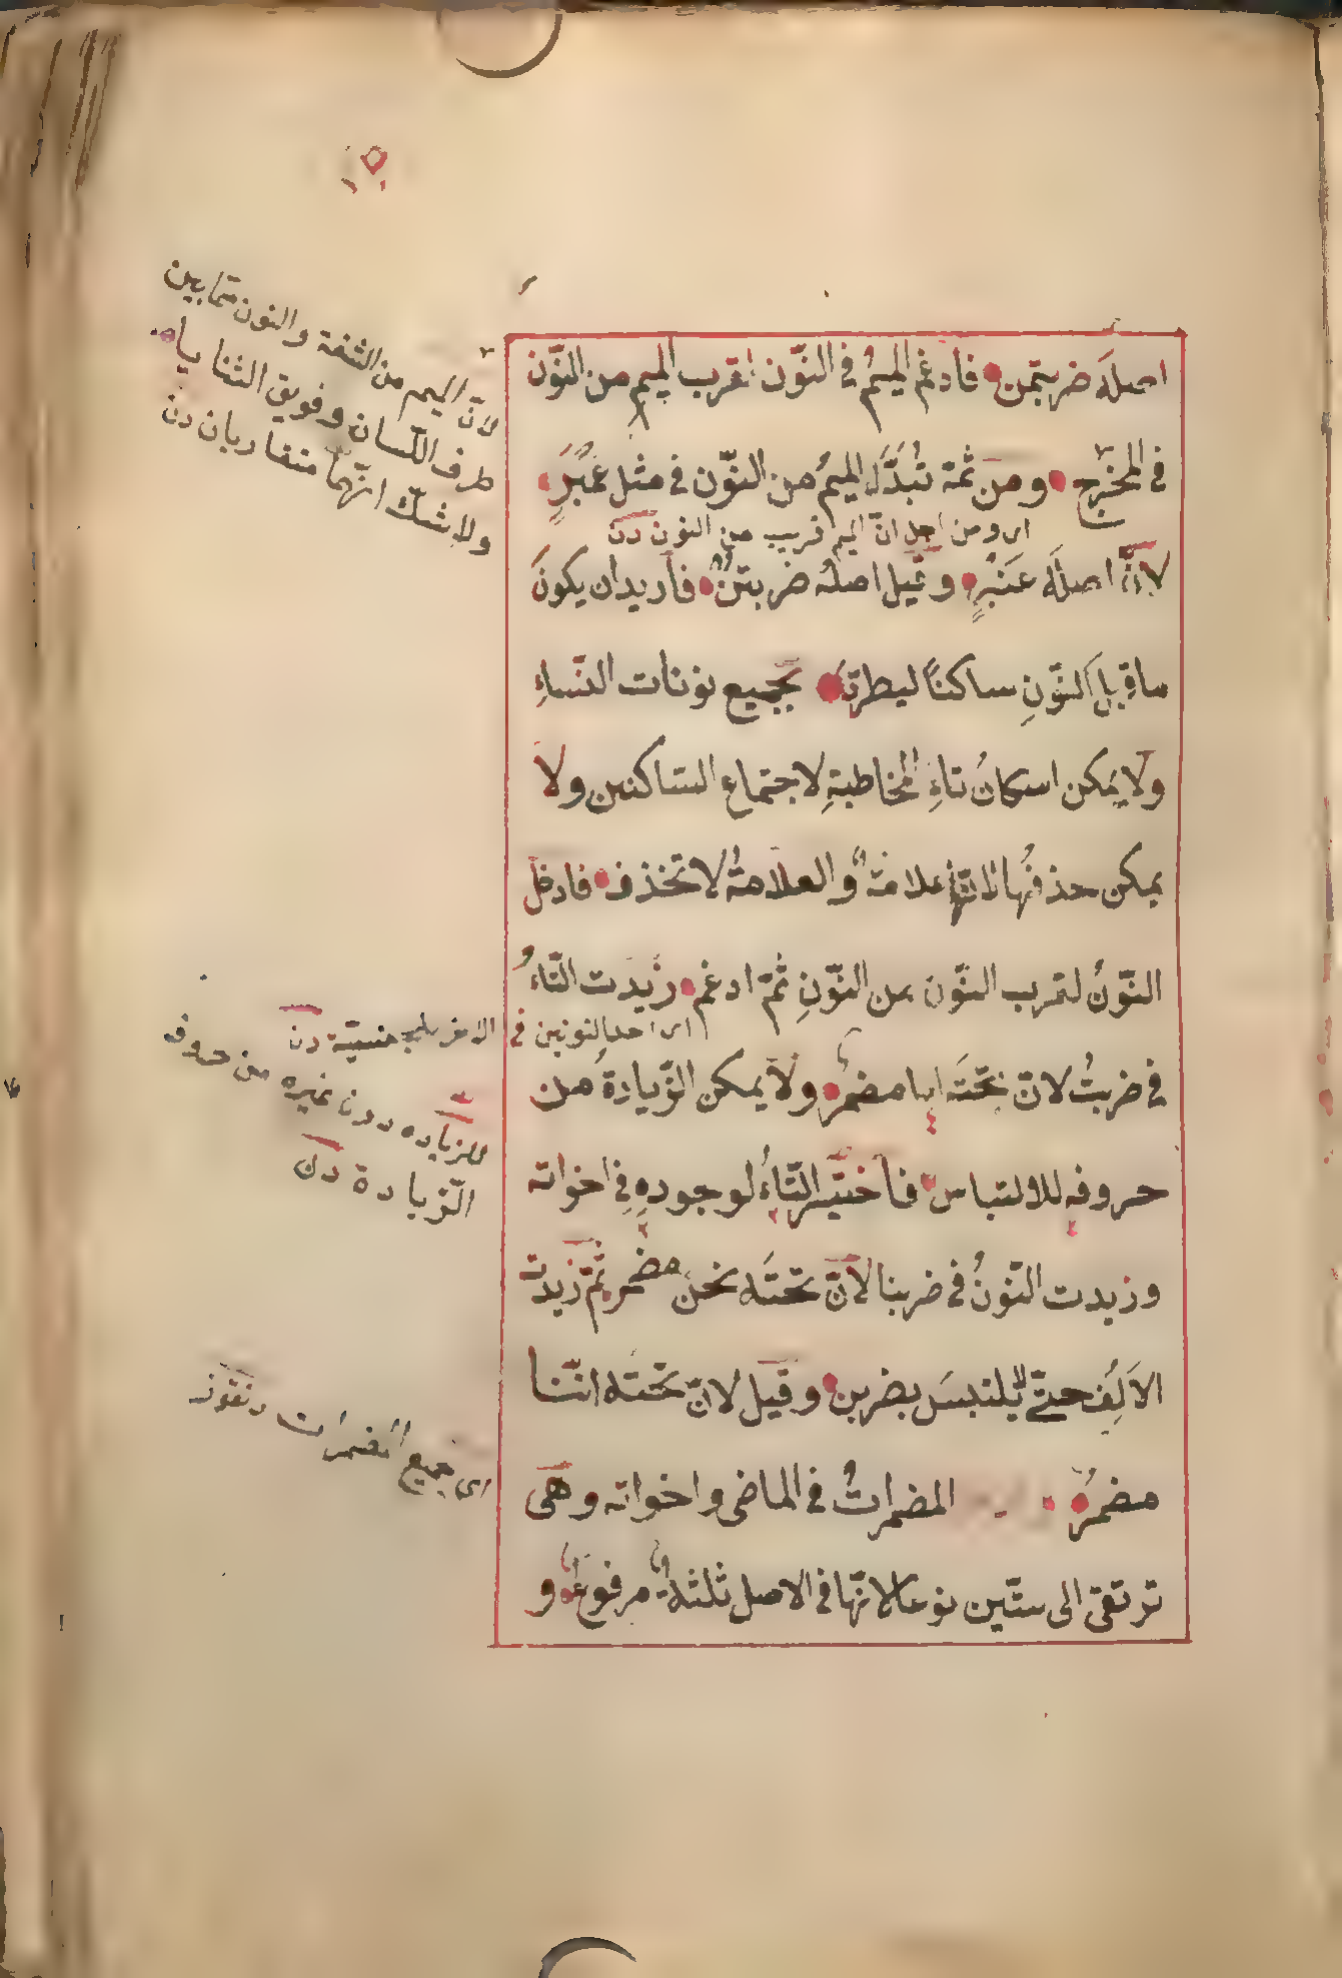 اصلَه ضربتمن فادغم الميمُ في النّون لقرب الميم من النّون
في المخرج ومن ثمة تُبدَّل الميمُ من النّون في مثل عمبرٍ
اى ومن اجل انّ الميم قريب من النون
لانّ اصلَه عَنبرٍ وقيل اصلُه ضربتنْ فاريد ان يكونَ
ما قبل النّونِ ساكنًا ليطرد بجميع نونات النّساءِ
ولا يمكن اسكانُ تاءِ المخاطبةِ لاجتماع السّاكنين ولا
يمكن حذفُها لانّها علامةٌ والعلامةُ لا تحذف فادخل
النّونُ لقرب النّون من النّونِ ثمّ ادغم زيدت التّاءُ
اى احد النونين في الاخر
في ضربتُ لانّ تحتَه انا مضمرٌ ولا يمكن الزّيادةُ من
حروفه للالتباس فاختير التّاءُ لوجودهِ في اخواته
وزيدت النّونُ في ضربنا لانّ تحتَه نحن مضمر ثمّ زيدت
الاَلِف حتّى لا يلتبسَ بضربن وقيل لانّ تحتَه انّنا
مضمرٌ المضمراتُ في الماضى واخواته وهى
ترتقى الى ستّين نوعا لانّها في الاصل ثلثةٌ مرفوعٌ و
لانّ الميم من الشفة والنون ممّا بين
طرف اللّسان وفويق الثنايا
ولا شكّ انّهما متقاربان
للزياده دون غيره من حروف
الزّيادة
اى جميع المضمرات